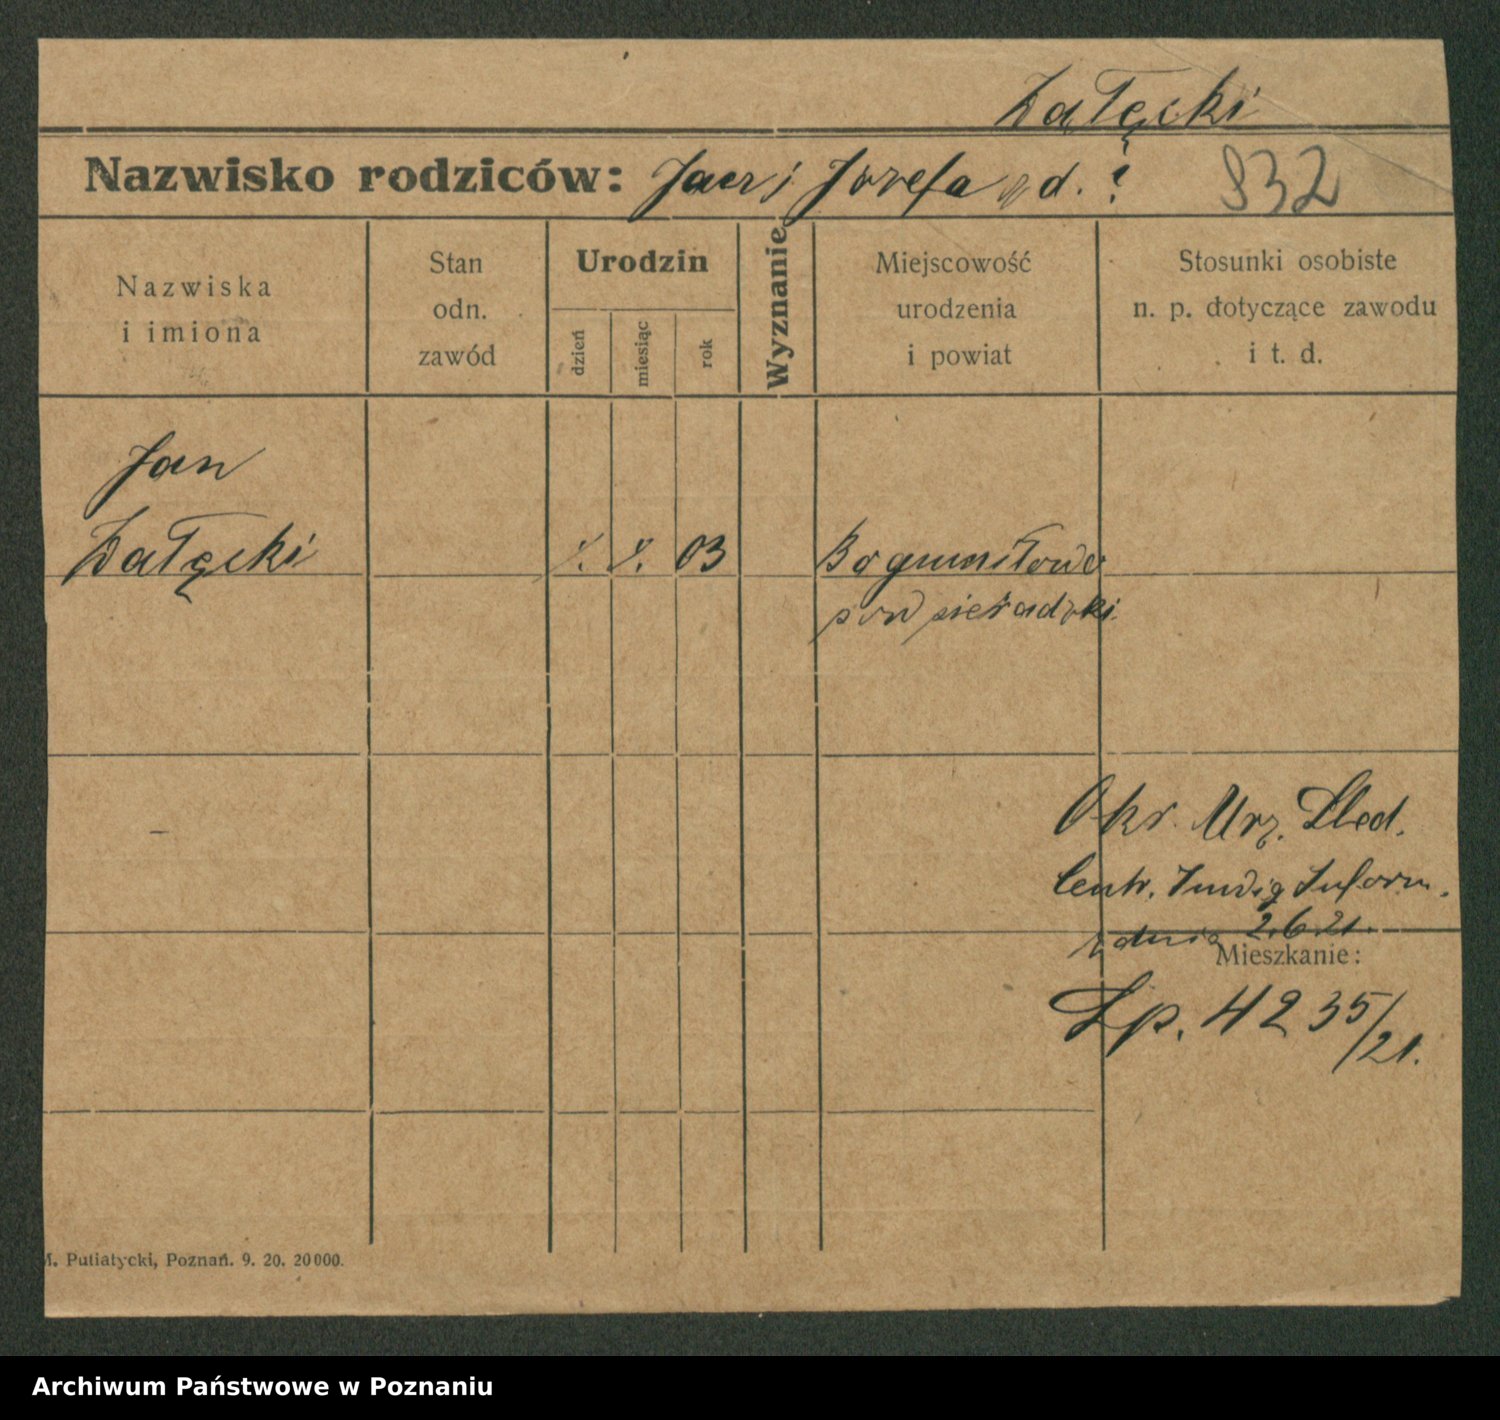 Załęcki
Nazwisko rodziców: Jan i Józefa z d. ?
832
Nazwiska
i imiona
Stan
odn.
zawód
Urodzin
dzień
miesiąc
rok
Wyznanie
Miejscowość
urodzenia
i powiat
Stosunki osobiste
n. p. dotyczące zawodu
i t. d.
Jan
Załęcki
03
Bogumiłowo
pow sieradzki.
Okr. Urz. Śled.
Centr. Inform.
z dnia 2.6.21.
Mieszkanie:
Lp. 4235/21.
M. Putiatycki, Poznań. 9. 20. 20000.
Archiwum Państwowe w Poznaniu